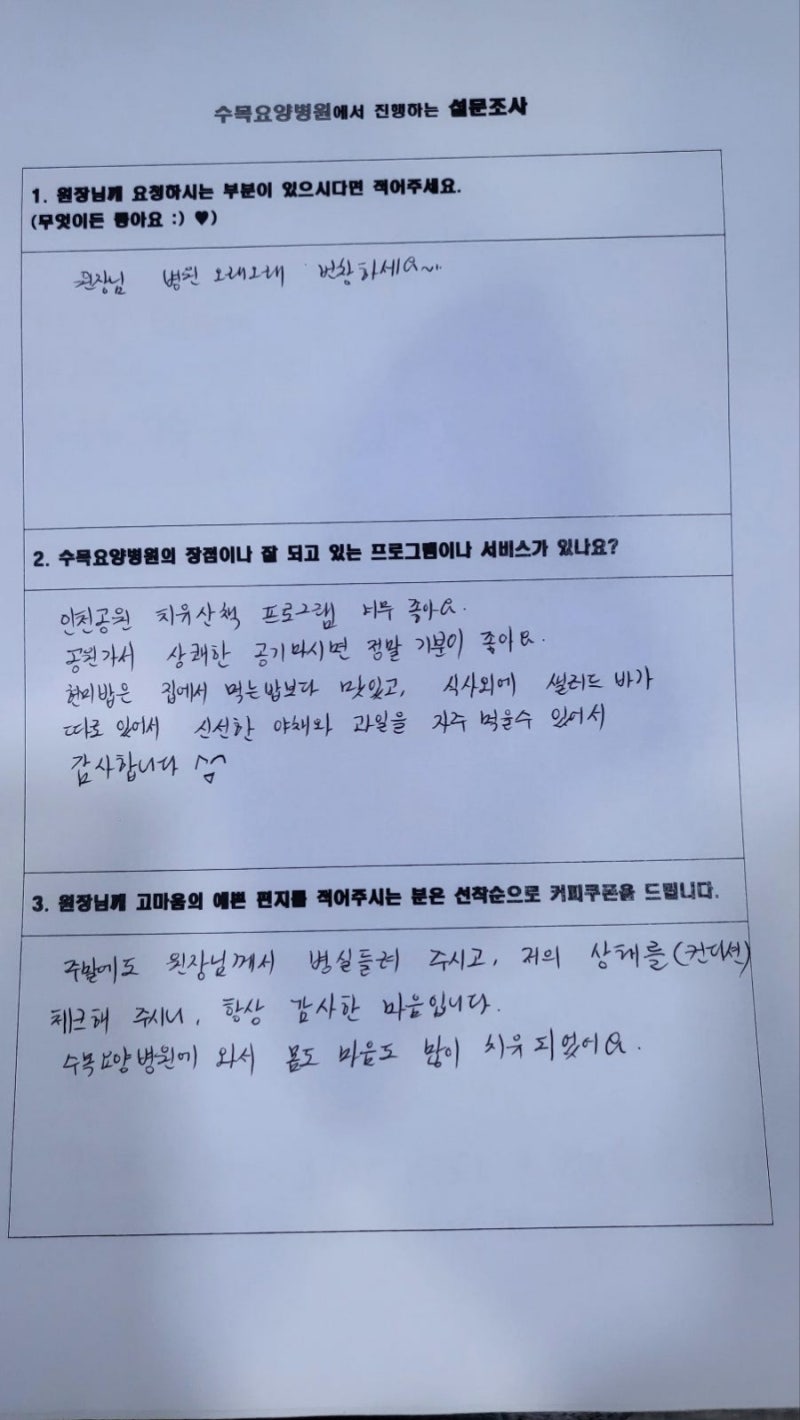 수목요양병원에서 진행하는 설문조사
1. 원장님께 요청하시는 부분이 있으시다면 적어주세요.
(무엇이든 좋아요 :) ♥)
원장님 병원 오래오래 번창하세요~..
2. 수목요양병원의 장점이나 잘 되고 있는 프로그램이나 서비스가 있나요?
인천공원 치유산책 프로그램 너무 좋아요.
공원가서 상쾌한 공기마시면 정말 기분이 좋아요.
현미밥은 집에서 먹는밥보다 맛있고, 식사외에 쌜러드 바가
따로 있어서 신선한 야채와 과일을 자주 먹을수 있어서
감사합니다 ^^
3. 원장님께 고마움의 예쁜 편지를 적어주시는 분은 선착순으로 커피쿠폰을 드립니다.
주말에도 원장님께서 병실들려 주시고, 저의 상태를(컨디션)
체크해 주시니, 항상 감사한 마음입니다.
수목요양병원에 와서 몸도 마음도 많이 치유되었어요.